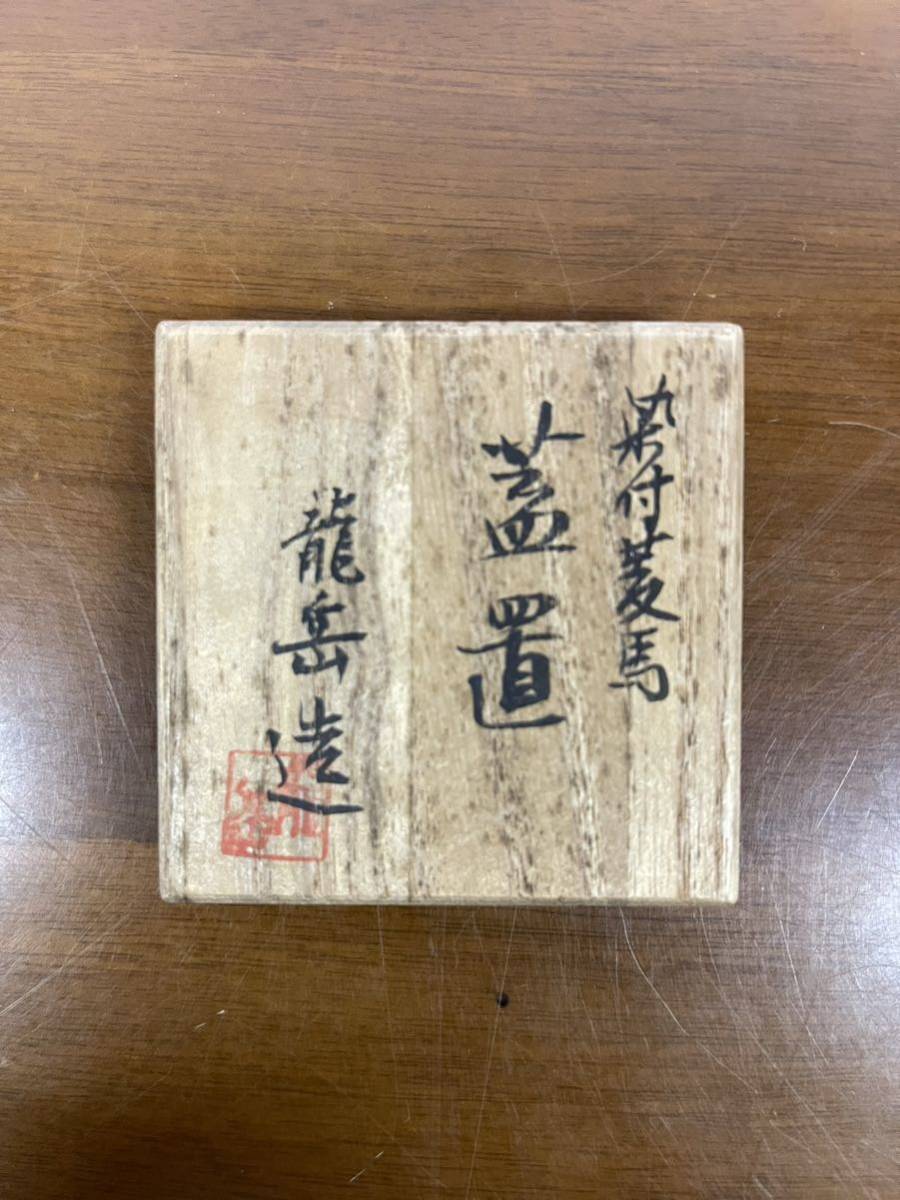 染付菱馬
蓋置
龍岳造